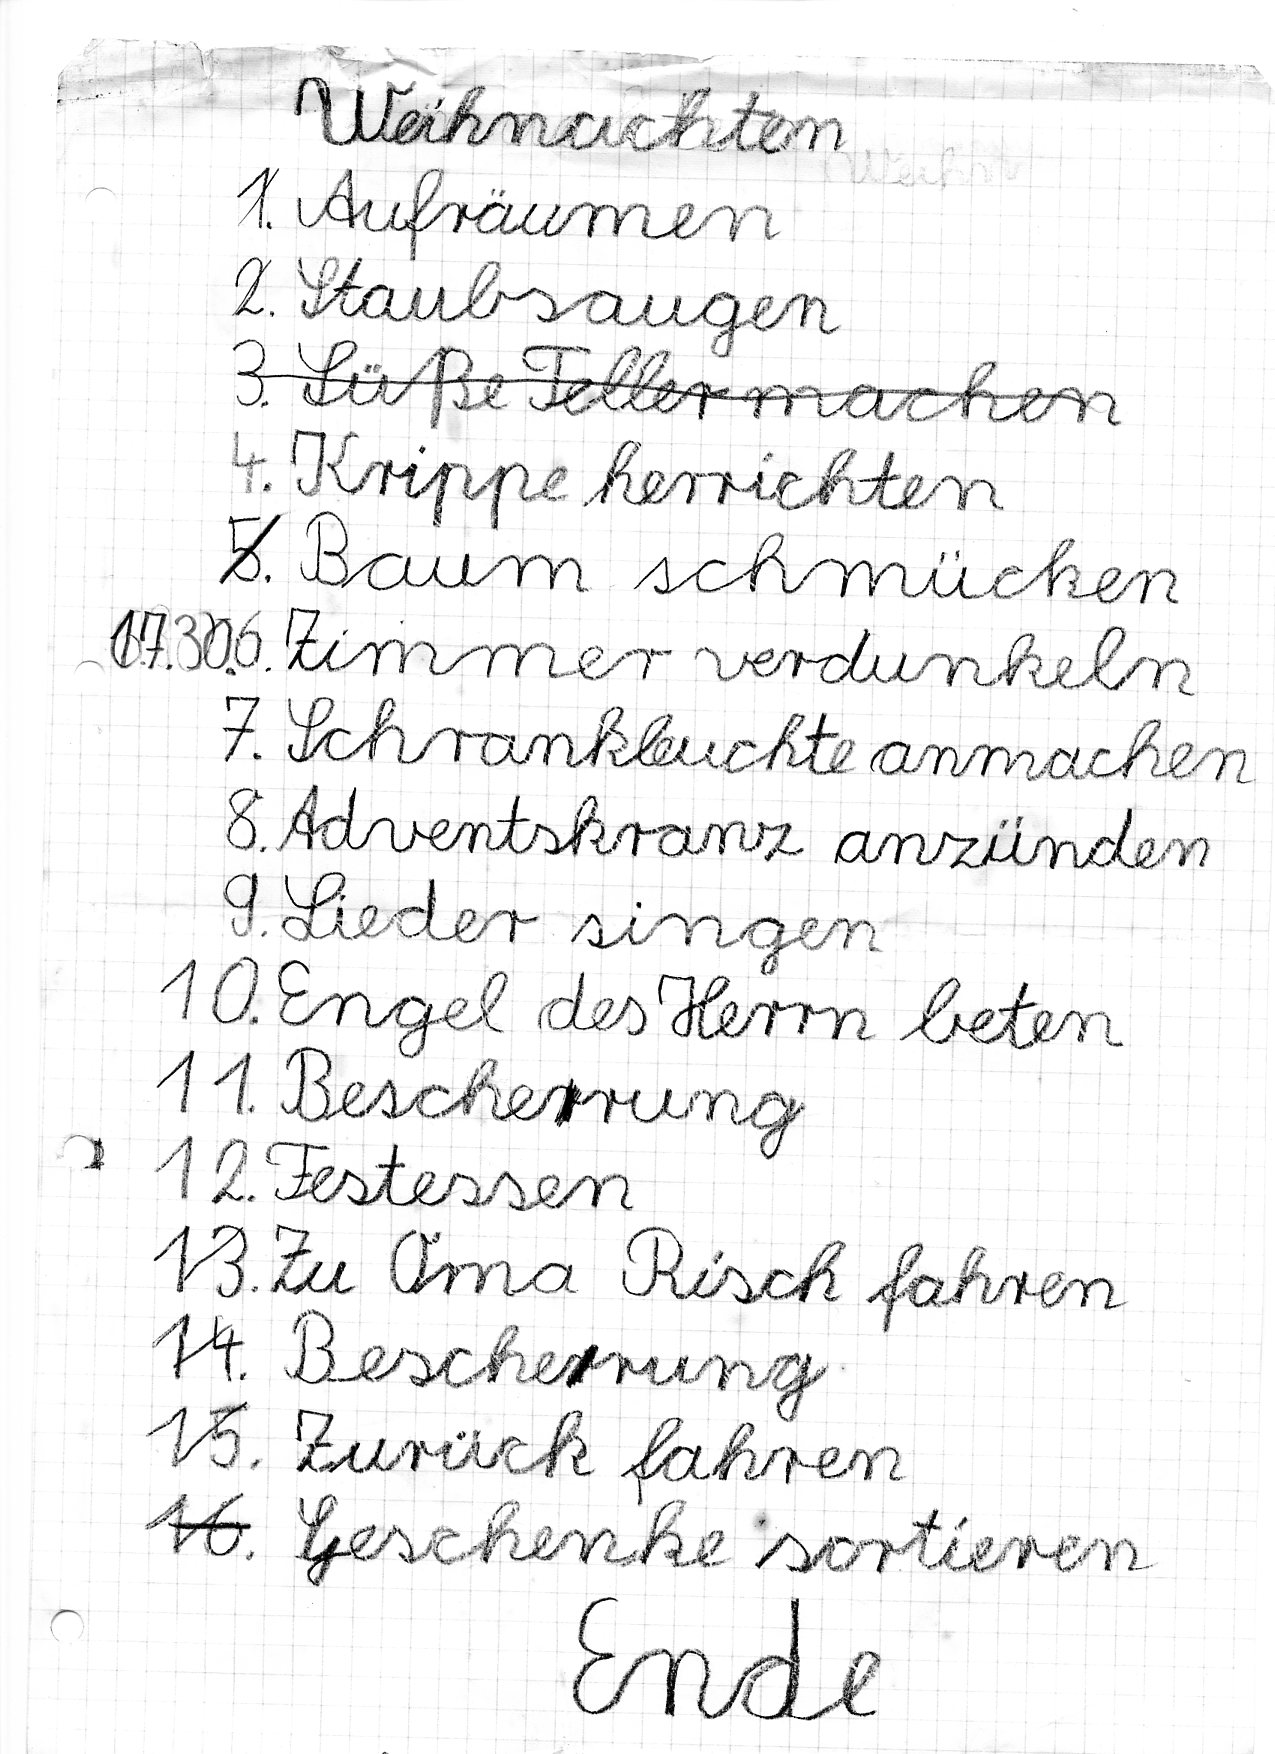 Weihnachten
1. Aufräumen
2. Staubsaugen
3. Süße Teller machen
4. Krippe herrichten
5. Baum schmücken
17.30 6. Zimmer verdunkeln
7. Schrankleuchte anmachen
8. Adventskranz anzünden
9. Lieder singen
10. Engel des Herrn beten
11. Bescherrung
12. Festessen
13. Zu Oma Risch fahren
14. Bescherrung
15. Zurück fahren
16. Geschenke sortieren
Ende